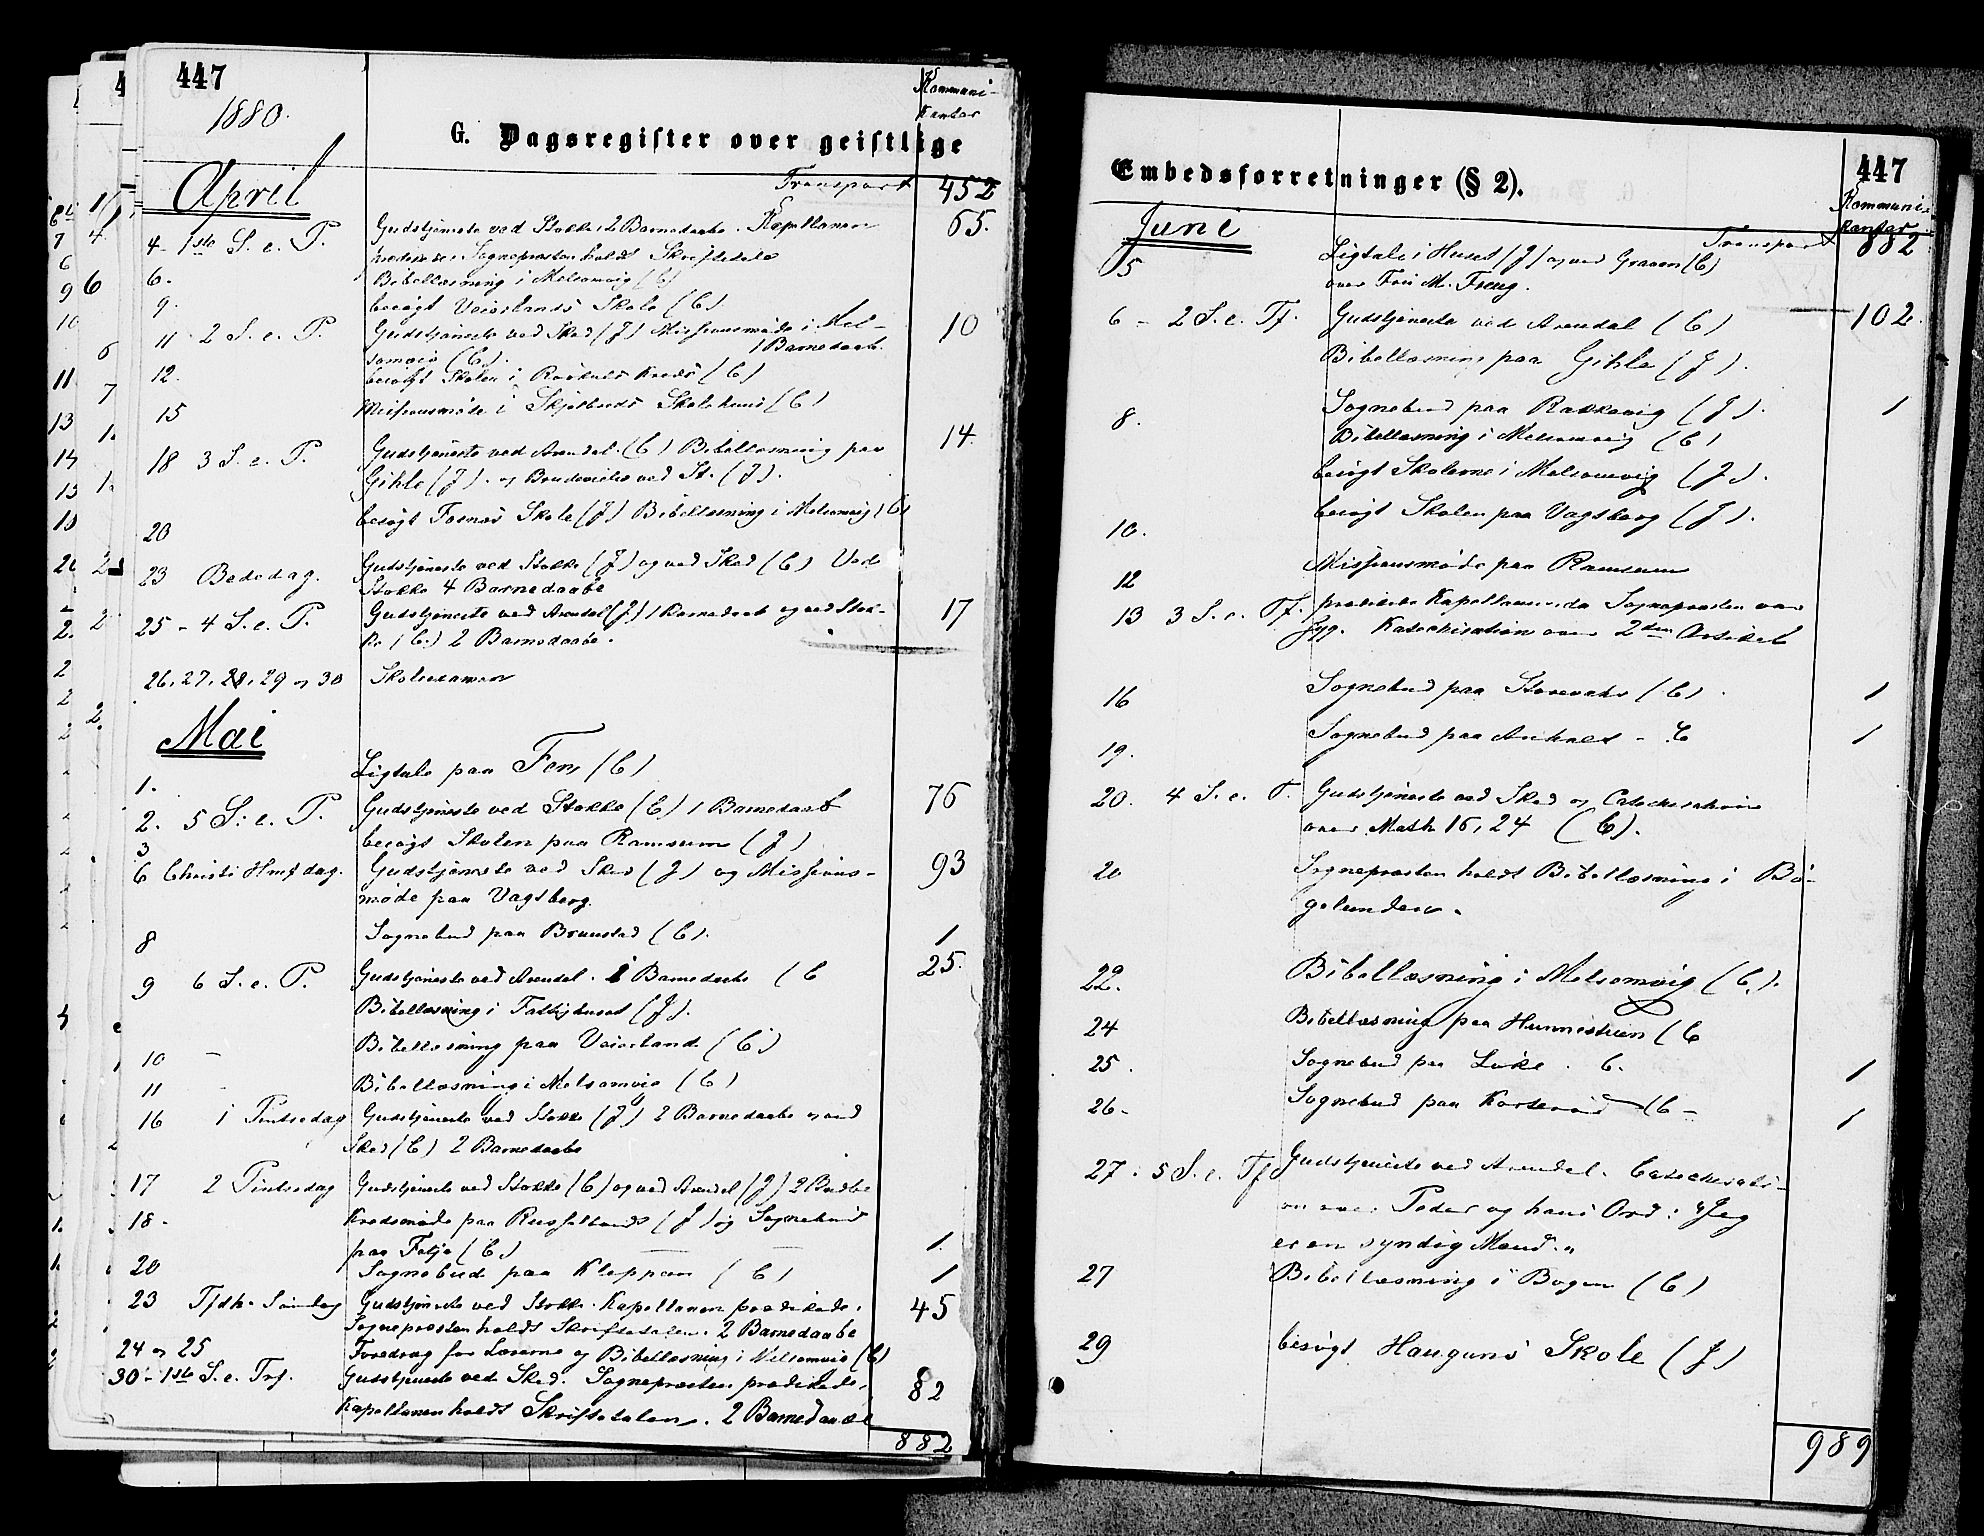 447
1880.
Kommuni-
kanter
G. Dagsregister over geistlige
April
Transport 452
4 - 1ste S. e. P. Gudstjeneste ved Stokke 2 Barnedaabe. Kapellanen 65.
prædikede. Sognepræsten holdt Skriftetale
6. Bibellæsning i Melsomvig (C)
9. besøgt Veierlands Skole (C)
11 - 2 S. e. P. Gudstjeneste ved Sked (J) Missionsmøde i Mel- 10
somvig (C). 1 Barnedaab.
12. besøgt Skolen i Kreds (C)
15 Missionsmøde i Skjelbreds Skolehuus (C)
18 3 S. e. P. Gudstjeneste ved Arendal. (C) Bibellæsning paa 14.
Gihle (J). og Brudevielse ved St. (J).
20 besøgt Fosnæs Skole (J) Bibellæsning i Melsomvig (C)
23 Bededag. Gudstjeneste ved Stokke (J) og ved Sked (C) Ved
Stokke 4 Barnedaabe
25 - 4 S. e. P. Gudstjeneste ved Arendal (J) 1 Barnedaab og ved Stok- 17
ke (C.) 2 Barnedaabe.
26, 27, 28, 29 og 30 Skoleexamen
Mai
1. Ligtale paa Fen (C)
2. 5 S. e. P. Gudstjeneste ved Stokke (C) 1 Barnedaab 76
3 besøgt Skolen paa Ramsum (J)
6 Christi Hmfdag. Gudstjeneste ved Sked (J) og Missions- 93
møde paa Vagsberg.
8 Sognebud paa Brunstad (C). 1
9 6 S. e. P. Gudstjeneste ved Arendal. 1 Barnedaabe (C 25.
Bibellæsning i Fattighuset (J).
10 - Bibellæsning paa Veierland (C)
11 - Bibellæsning i Melsomvig (C)
16 1 Pintsedag Gudstjeneste ved Stokke (J) 2 Barnedaabe og ved
Sked (C) 2 Barnedaabe
17 2 Pintsedag Gudstjeneste ved Stokke (C) og ved Arendal (J) 2
18. Kredsmøde paa (J) og Sognebud
paa Feltje (C.) 1.
20 Sognebud paa Kleppan (C) 1
23 Tfdh. Søndag Gudstjeneste ved Stokke. Kapellanen prædikede. 45
Sognepræsten holdt Skriftetalen. 2 Barnedaabe
24 og 25 Foredrag for Lærerne og Bibellæsning i Melsomvig (C)
30 - 1ste S. e. Trf. Gudstjeneste ved Sked. Sognepræsten prædikede, 82
Kapellanen holdt Skriftetalen. 2 Barnedaabe
882
Embedsforretninger (§ 2).
447
Kommuni-
kanter
Juni
Transport 882
5 Ligtale i Huset (J) og ved Graven (C)
over Fru M. Freng.
6 - 2 S. e. Tf. Gudstjeneste ved Arendal (C) 102.
Bibellæsning paa Gihle (J).
8. Sognebud paa Rakkevig (J). 1
Bibellæsning i Melsomvig (C)
besøgt Skolerne i Melsomvig (J).
10. besøgt Skolen paa Vagsberg (J).
12 Missionsmøde paa Ramsum
13 3 S. e. Tf. prædikede Kapellanen da Sognepræsten var
syg. Katechisation over 2den Artikel
16 Sognebud paa Storevahr (C). 1
19. Sognebud paa - C 1
20. 4 S. e. T. Gudstjeneste ved Sked og Catechisation
over Math 16, 24 (C).
20 Sognepræsten holdt Bibellæsning i Bö-
gelunden.
22. Bibellæsning i Melsomvig (C.).
24 Bibellæsning paa Hunnestuen (C
25. Sognebud paa Løke. C. 1
26- Sognebud paa Korterød (C - 1
27. 5 S. e. Tf Gudstjeneste ved Arendal. Catechisati-
on over Peder og hans Ord: "Jeg
er en syndig Mand."
27 Bibellæsning i Bogen (C)
29 besøgt Haugans Skole (J)
989